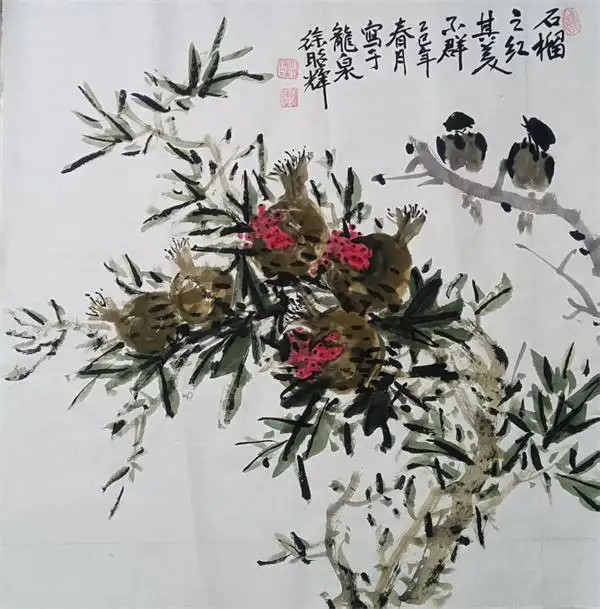 石榴
之红
其美
不群
乙巳年
春月
寫于
龍泉
徐昭輝